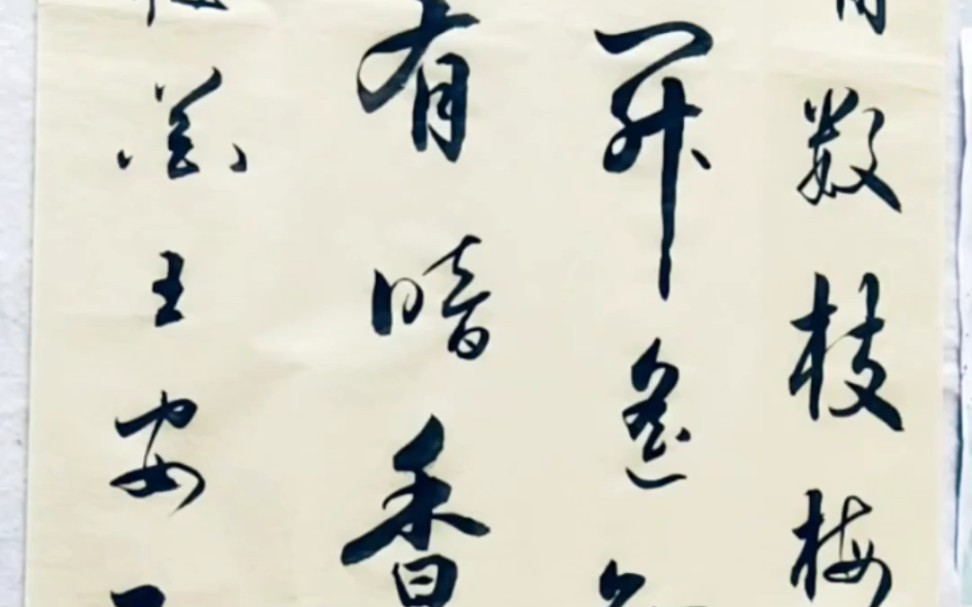 数枝梅
开遥知
有暗香
王安